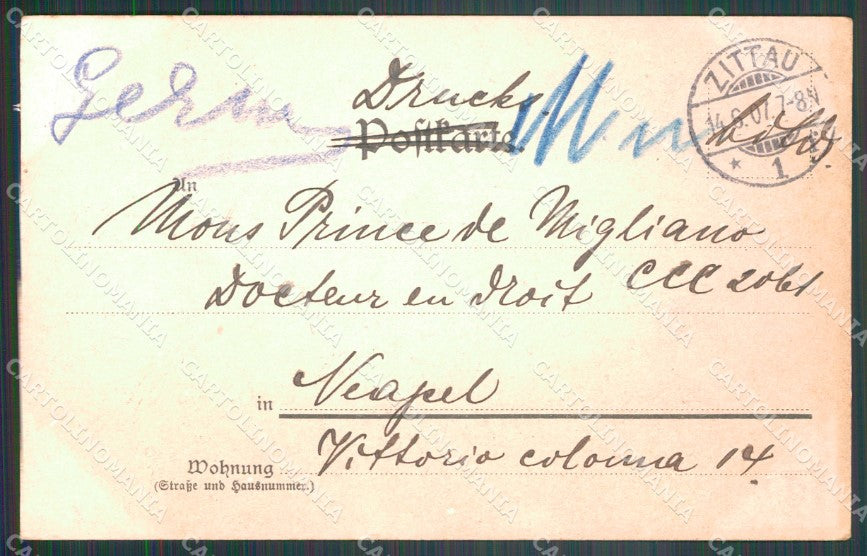 Drucks.
Postkarte.
ZITTAU
14.6.07. 7-8N
* 1
An
Mons Prince de Migliano
Docteur en droit CCC 2061
in Neapel
Wohnung Vittorio colonna 14
(Straße und Hausnummer.)
CARTOLINOMANIA